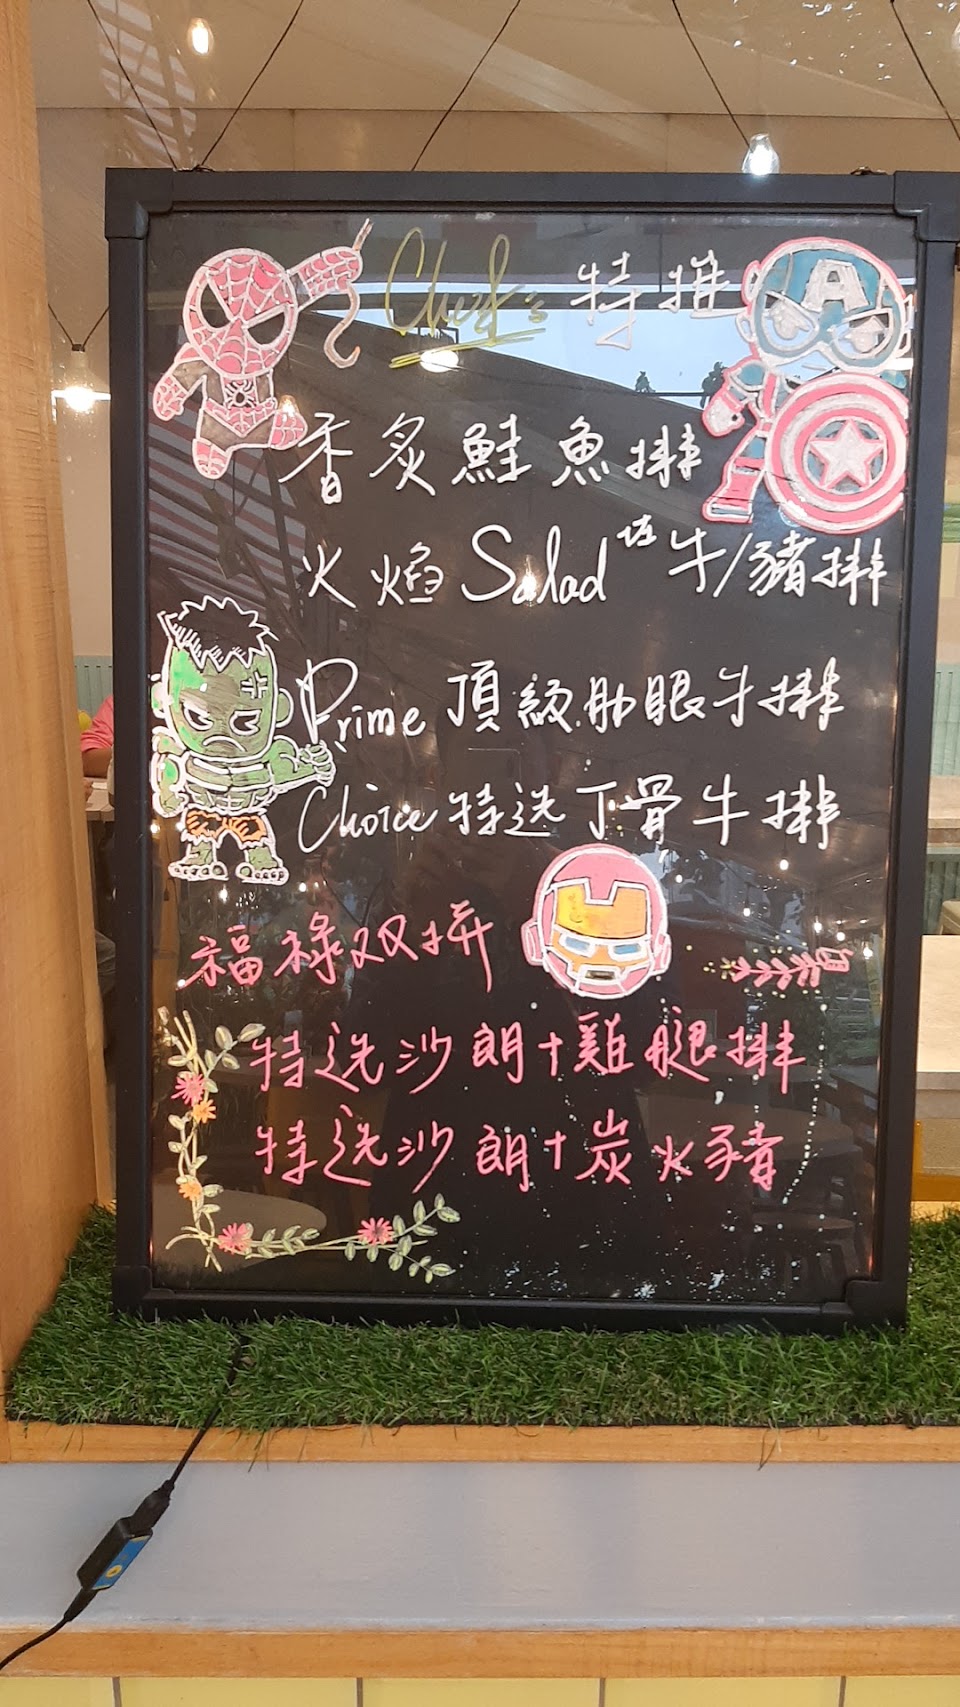 Chef's 特推
香炙鮭魚排
火焰Salad 塔牛/豬排
Prime 頂級肋眼牛排
Choice 特选丁骨牛排
福祿双拼
特选沙朗+雞腿排
特选沙朗+炭火豬